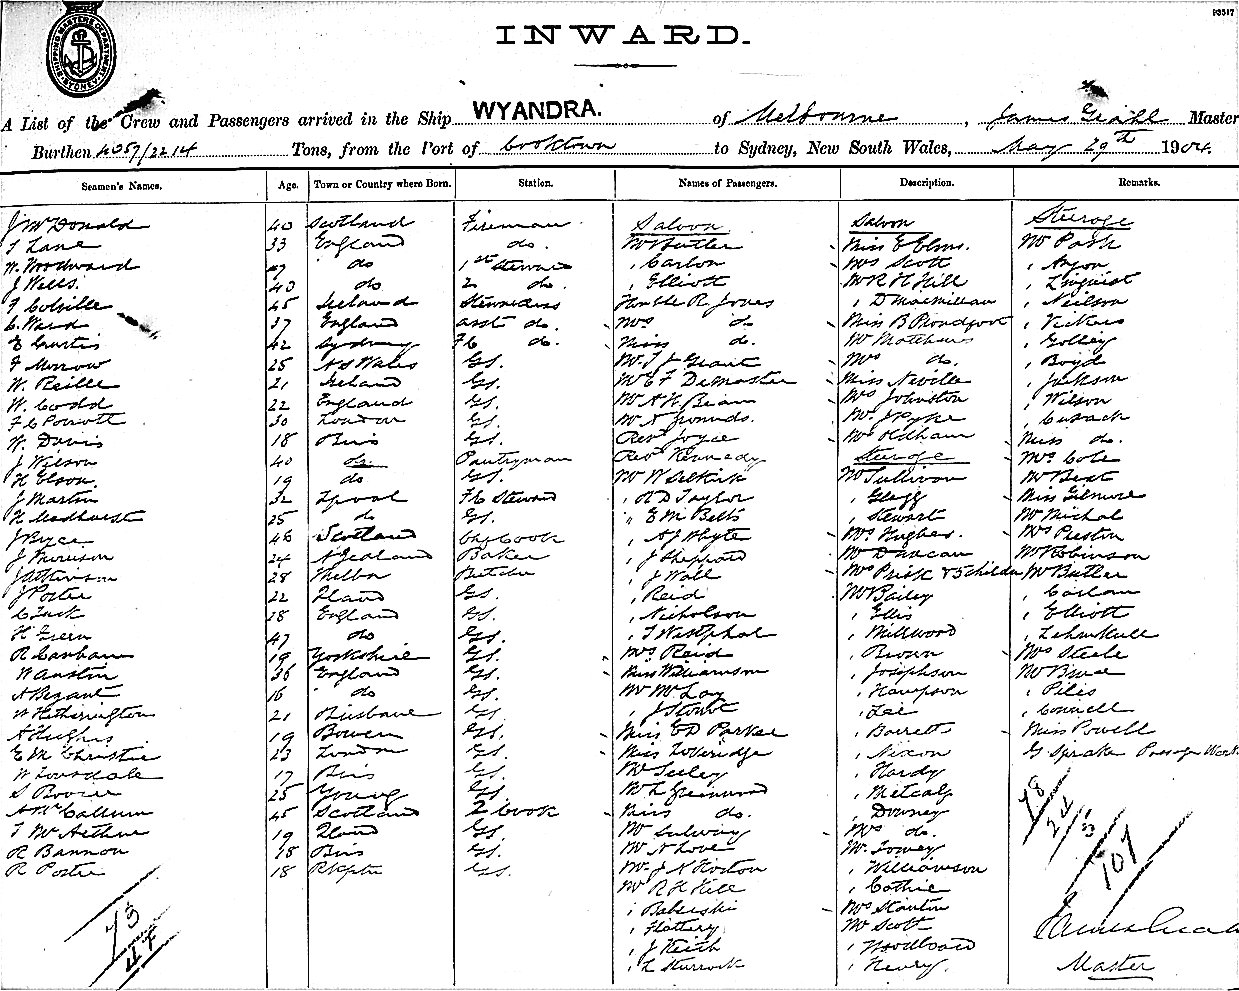 93517
SHIPPING MASTERS DEPARTMENT SYDNEY
INWARD.
A List of the Crew and Passengers arrived in the Ship WYANDRA. of Melbourne, James Master
Burthen 4057/2214 Tons, from the Port of Cooktown to Sydney, New South Wales, May 29th 1904.
Seamen's Names. Age. Town or Country where Born. Station. Names of Passengers. Description. Remarks.
J McDonald 40 Scotland Fireman Saloon Saloon Steerage
T Lane 33 England do. Mr Butler Miss E Elms. Mr Park
W. Woodward 27 do 1st Steward , Carlon Mrs Scott , Anjon
J Wells. 40 do 2 do , Elliott Mr R H Hill , Linquist
T Colville 45 Ireland Stewardess R Jones , D Macmillan , Neilson
C. Ward 37 England asst do. Mrs do Miss B , Vickers
E Curtis 42 Sydney FC do. Miss do. Mr Matthews , Golley
F Morrow 25 N S Wales GS. Mr T J Grant Mrs do. , Boyd
W. Reille 21 Ireland GS. Mr E F DeMaster Miss Neville , Jackson
W. Codd 22 England GS. Mr A H Beam Mrs Johnston , Wilson
F C Porrott 30 London GS. Mr N Mr J Pyke , Cusack
W. Davis 18 Bris GS. Revd Joyce Mrs Oldham Miss do.
J Wilson 40 do Pantryman Revd Kennedy Steerage Mrs Cole
H Elson. 19 do GS. Mr W Selkirk Mr Sullivan Mr Best
J Martin 32 Lpool FC Steward , A D Taylor , Glegg Miss Gilmore
N Madhurst 25 do GS. , E M Betts , Stewart Mr Nichol
J Bryce 46 Scotland Chf Cook , A J Whyte Mrs Hughes. Mrs Preston
J Morrison 24 N Zealand Baker , J Sheppard Mr Duncan Mr Robinson
J Atkinson 28 Melbn Butcher , J Wall Mrs Prisk & 5 Childn Mr Butler
J Porter 22 Iland GS. , Reid Mr Bailey , Carlam
C Tuck 28 England GS. , Nicholson , Ellis , Elliott
H Green 47 do GS. , T Westphal , Millwood
R Canham 19 Yorkshire GS. Mrs Reid , Brown Mrs Steele
W Austin 36 England GS. Miss Williamson , Josephson Mr Bruce
A Bryant 16 do GS. Mr McLay , Hampson , Piles
W Hetherington 21 Brisbane GS. , J Stout , Lee , Connell
A Hughes 19 Bowen GS. Miss E D Parker , Barrett Miss Powell
E M Christie 23 London GS. Miss Loveridge , Nixon G Sprake Passage Work
W Lonsdale 17 Bris GS. Mr Seeley , Hardy
S Boorer 25 Young GS. Mr L Greenwood , Metcalf 78
A McCallum 45 Scotland 2 Cook Miss do. , Downey 24/5
T McArthur 19 Iland GS. Mr Mrs do. 107
R Bannon 18 Bris GS. Mr N Love Mr. Towey
R Porter 18 Rkptn GS. Mr J N Horton , Williamson
Mr R H Hill , Cathie
73 , Baberski Mrs Stanton
44 , Flattery Mr Scott
, J Keith , Woodload
, L Sturrock , Henry.
Master